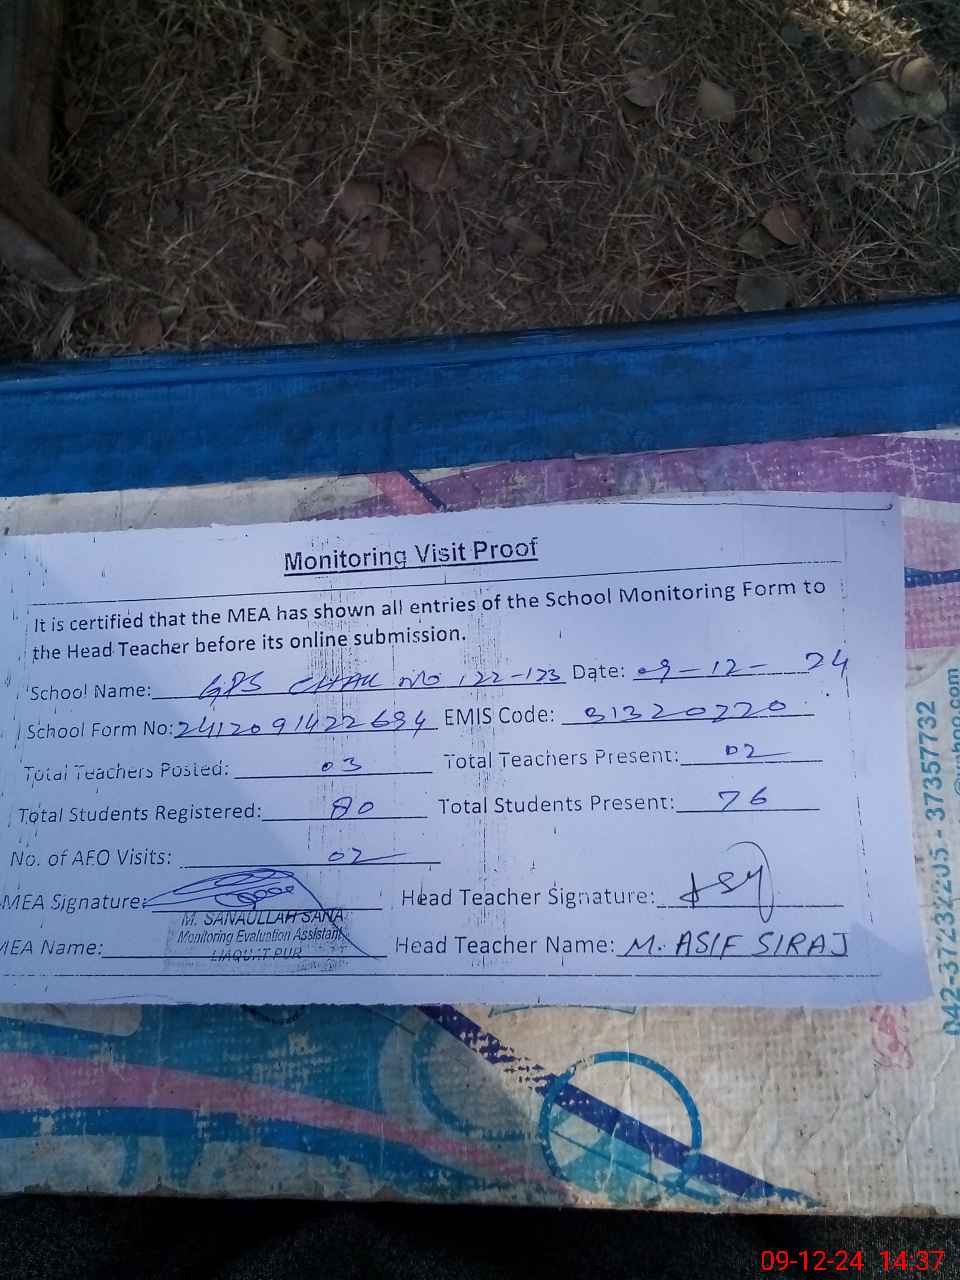 Monitoring Visit Proof
It is certified that the MEA has shown all entries of the School Monitoring Form to
the Head Teacher before its online submission.
School Name: GPS CHAK NO 122-123 Date: 09-12-24
School Form No: 2412091422694 EMIS Code: 31320220
Total Teachers Posted: 03 Total Teachers Present: 02
Total Students Registered: 80 Total Students Present: 76
No. of AEO Visits: 02
MEA Signature: Head Teacher Signature:
M. SANAULLAH SANA
Monitoring Evaluation Assistant
LIAQUAT PUR
MEA Name: Head Teacher Name: M. ASIF SIRAJ
042-37232205 - 37357732
@yahoo.com
09-12-24 14:37